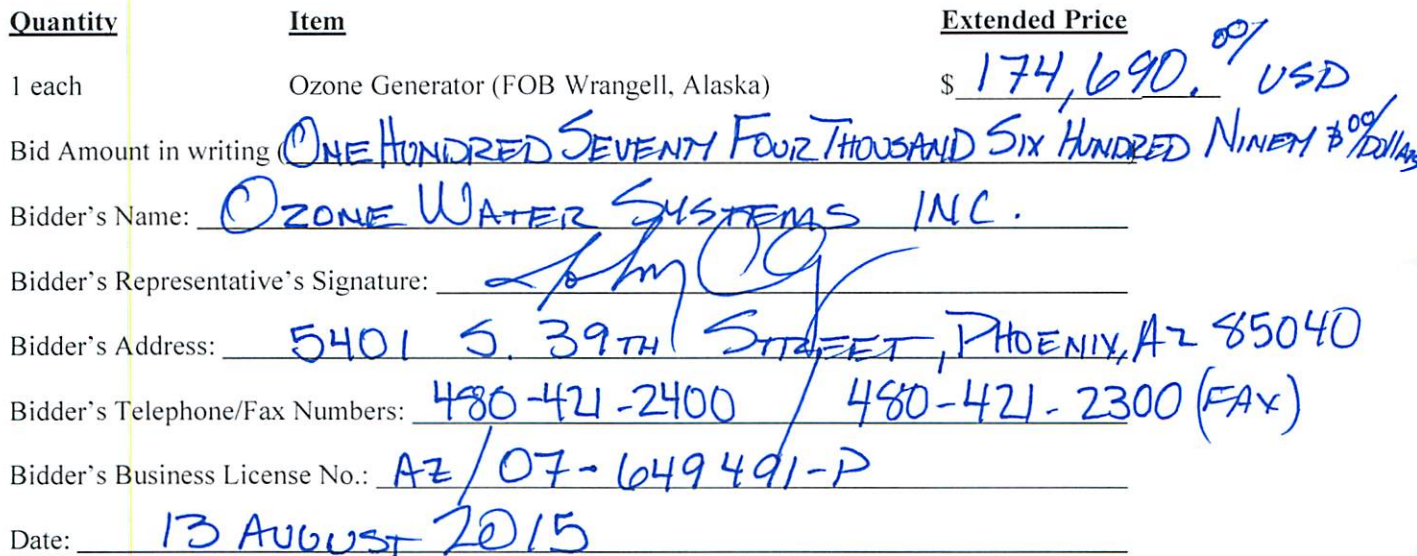 Quantity Item Extended Price
1 each Ozone Generator (FOB Wrangell, Alaska) $ 174,690.00/ USD
Bid Amount in writing (ONE HUNDRED SEVENTY FOUR THOUSAND SIX HUNDRED NINETY $00/DOLLARS
Bidder's Name: OZONE WATER SYSTEMS INC.
Bidder's Representative's Signature:
Bidder's Address: 5401 S. 39TH STREET, PHOENIX, AZ 85040
Bidder's Telephone/Fax Numbers: 480-421-2400 / 480-421-2300 (FAX)
Bidder's Business License No.: AZ / 07-649491-P
Date: 13 AUGUST 2015